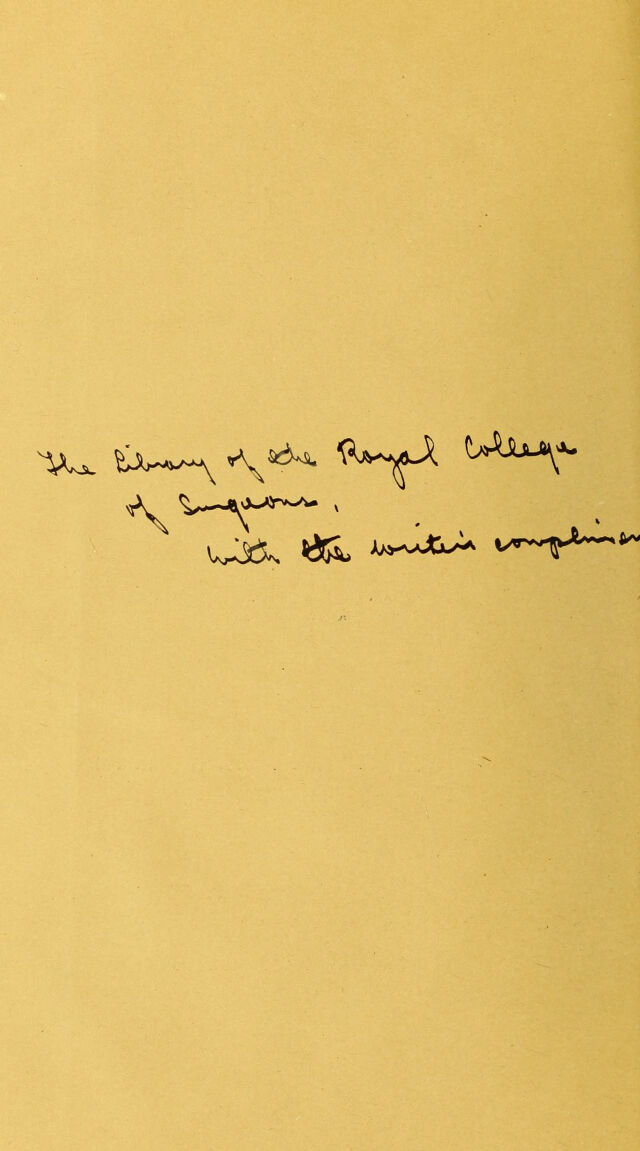 The Library of the Royal College
of Surgeons,
with the writer's complimen